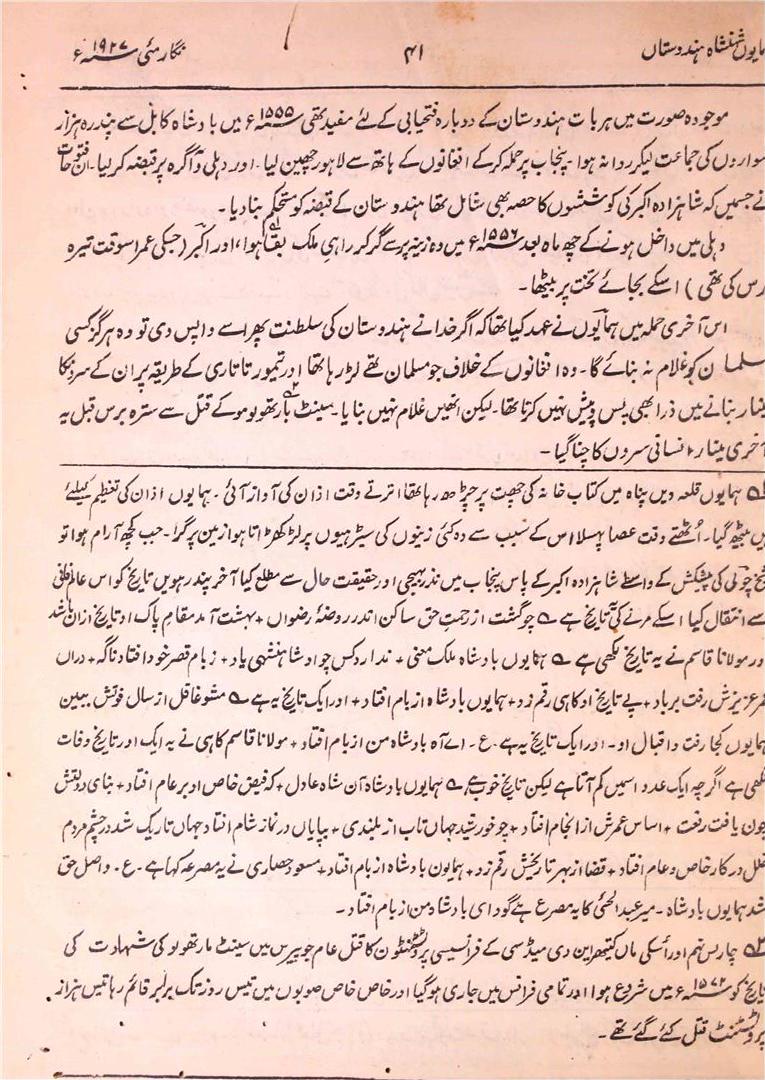 ہمایوں شہنشاہ ہندوستاں ۴۱ نگار مئی ۱۹۲۷ء
موجودہ صورت میں ہر بات ہندوستان کے دوبارہ فتحیابی کے لئے مفید تھی ۱۵۵۵ء میں بادشاہ کابل سے پندرہ ہزار
سواروں کی جماعت لیکر روانہ ہوا۔ پنجاب پر حملہ کرکے افغانوں کے ہاتھ سے لاہور چھین لیا۔ اور دہلی و آگرہ پر قبضہ کر لیا۔ ان فتوحات
نے جسمیں کہ شاہزادہ اکبر کی کوششوں کا حصہ بھی شامل تھا ہندوستان کے قبضہ کو مستحکم بنا دیا۔
دہلی میں داخل ہونے کے چھ ماہ بعد ۱۵۵۶ء میں وہ زینہ پر سے گر کر راہیِ ملک بقا ہوا، اور اکبر (جسکی عمر اسوقت تیرہ
برس کی تھی) اسکے بجائے تخت پر بیٹھا۔
اس آخری حملہ میں ہمایوں نے عہد کیا تھا کہ اگر خدا نے ہندوستان کی سلطنت پھر اسے واپس دی تو وہ ہرگز کسی
مسلمان کو غلام نہ بنائے گا۔ وہ افغانوں کے خلاف جو مسلمان تھے لڑ رہا تھا اور تیمور تاتاری کے طریقہ پر ان کے سرونکا
مینار بنانے میں ذرا بھی پس و پیش نہیں کرتا تھا۔ لیکن انھیں غلام نہیں بنایا۔ سینٹ بارتھولومو کے قتل سے سترہ برس قبل یہ
آخری مینار انسانی سروں کا چنا گیا۔
۱ ہمایوں قلعہ دیں پناہ میں کتاب خانہ کی چھت پر چڑھ رہا تھا اترتے وقت اذان کی آواز آئی۔ ہمایوں اذان کی تعظیم کیلئے
میں بیٹھ گیا۔ اُٹھتے وقت عصا پھسلا اس کے سبب سے وہ کئی زینوں کی سیڑھیوں پر لڑکھڑاتا ہوا زمین پر گرا۔ جب کچھ آرام ہوا تو
شیخ چولی کی پیشکش کے واسطے شاہزادہ اکبر کے پاس پنجاب میں نذر بھیجی اور حقیقت حال سے مطلع کیا آخر پندرہویں تاریخ کو اس عالم فانی
سے انتقال کیا اسکے مرنے کی تاریخ ہے چو گشت از رحمتِ حق ساکن اندر روضۂ رضواں + بہشت آمد مقامِ پاک او تاریخ ازاں باشد
اور مولانا قاسم نے یہ تاریخ لکھی ہے ہمایوں بادشاہ ملک معنی + ندارد کس چو او شاہنشہی یاد + ز بام قصر خود افتاد ناگہ + دراں
عمر عزیزش رفت برباد + پے تاریخ او کاہی رقم زد + ہمایوں بادشاہ از بام افتاد + اور ایک تاریخ یہ ہے مشو غافل از سال فوتش ببین
ہمایوں کجا رفت و اقبال او۔ اور ایک تاریخ یہ ہے۔ ع۔ اے آہ بادشاہ من از بام افتاد + مولانا قاسم کاہی نے یہ ایک اور تاریخ وفات
لکھی ہے اگرچہ ایک عدد اسمیں کم آتا ہے لیکن تاریخ خوب ہے، ہمایوں بادشاہ آن شاہ عادل + کہ فیض خاص او بر عام افتاد + بنای دولتش
چون یافت رفعت + اساس عمرش از انجام افتاد + چو خورشید جہاں تاب از بلندی + بپایاں در نماز شام افتاد جہاں تاریک شد در چشم مردم
خلل در کار خاص و عام افتاد + قضا از بہر تاریخش رقم زد + ہمایون بادشاہ از بام افتاد + مسعود حصاری نے یہ مصرعہ کہا ہے۔ ع۔ واصل حق
شد ہمایوں بادشاہ۔ میر عبدالحئی کا یہ مصرع ہے گو دای بادشاہ من از بام افتاد۔
۲ چارلس نہم اور اُسکی ماں کیتھراین دی میڈسی کے فرانسیسی پروٹسٹنٹون کا قتل عام جو پیرس میں سینٹ مارتھولو کی شہادت کی
تاریخ کو ۱۵۷۲ء میں شروع ہوا اور تمامی فرانس میں جاری ہو گیا اور خاص خاص صوبوں میں تیس روز تک برابر قائم رہا تیس ہزار
پروٹسٹنٹ قتل کئے گئے تھے۔